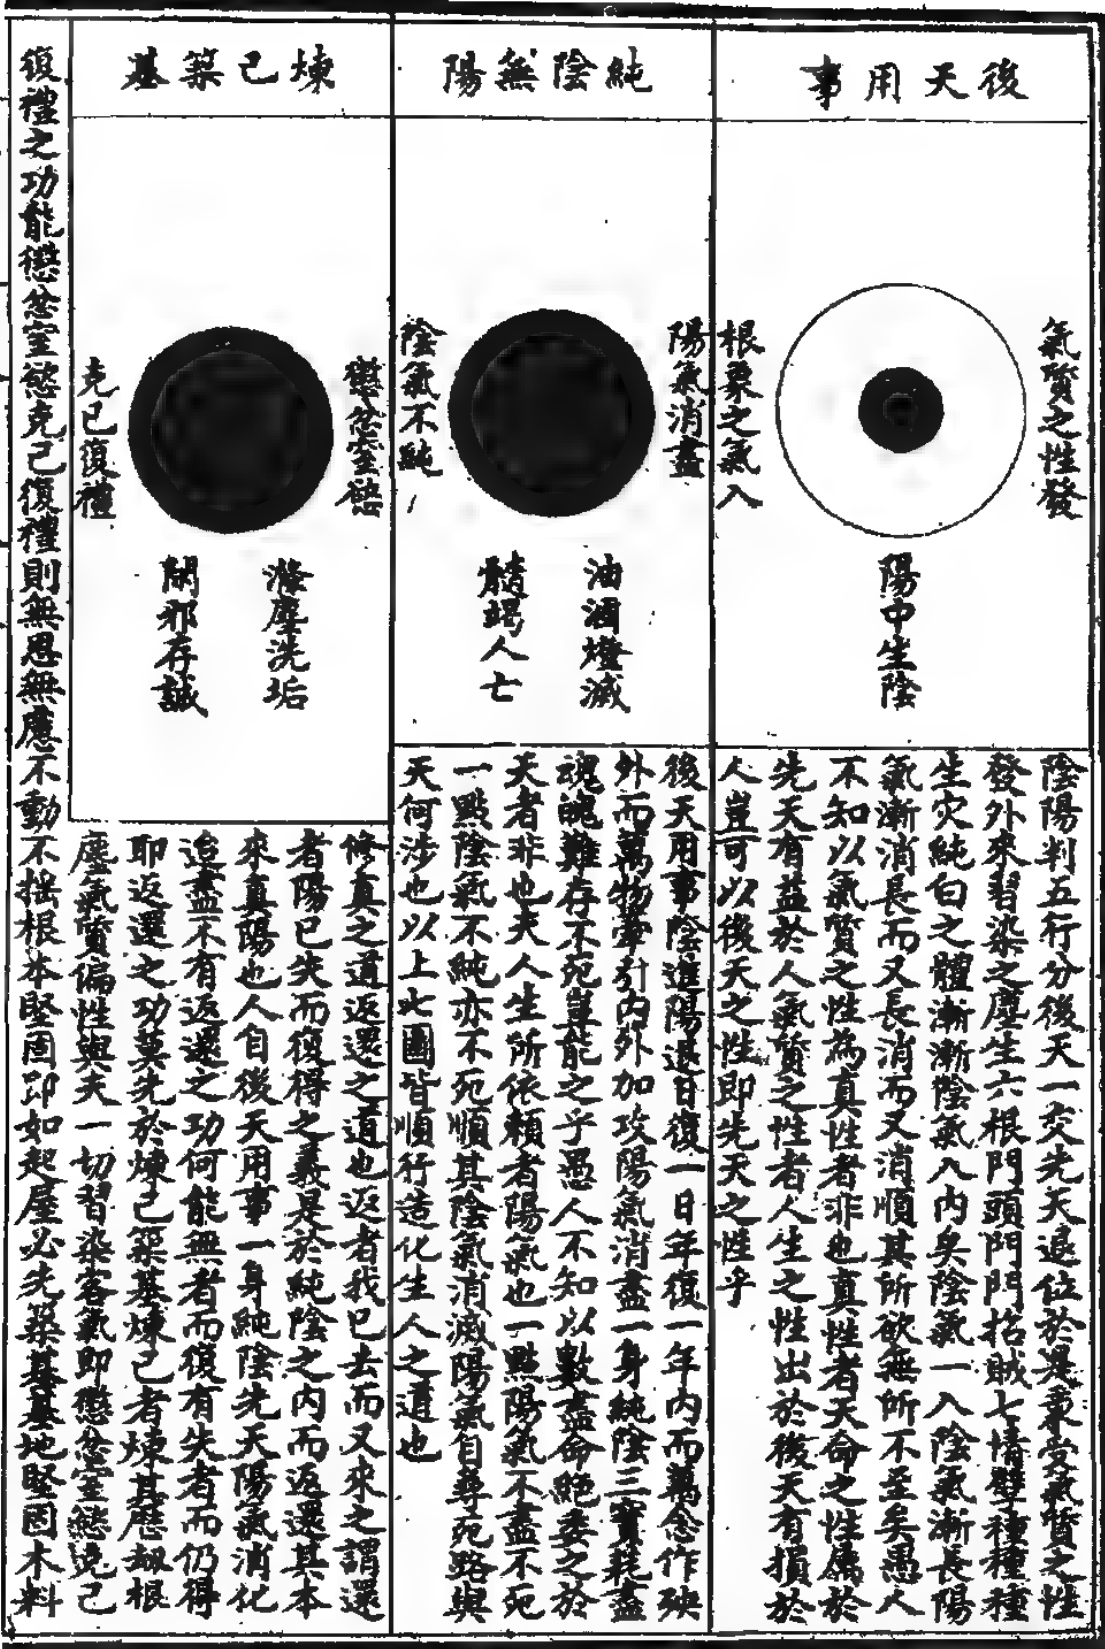 後天用事
氣質之性發
根象之氣入
陽中生陰
陰陽判五行分後天一交先天退位於是秉受氣質之性
發外來習染之塵生六根門頭門門招賊七情孽種種種
生灾純白之體漸漸陰氣入內矣陰氣一入陰氣漸長陽
氣漸消長而又長消而又消順其所欲無所不至矣愚人
不知以氣質之性為真性者非也真性者天命之性屬於
先天有益於人氣質之性者人生之性出於後天有損於
人豈可以後天之性即先天之性乎
純陰無陽
陽氣消盡
陰氣不純
油涸燈滅
髓竭人亡
後天用事陰進陽退日復一日年復一年內而萬念作殃
外而萬物牽引內外加攻陽氣消盡一身純陰三寶耗盡
魂魄難存不死豈能之乎愚人不知以數盡命絕委之於
天者非也夫人生所依賴者陽氣也一點陽氣不盡不死
一點陰氣不純亦不死順其陰氣消滅陽氣自尋死路與
天何涉也以上七圖皆順行造化生人之道也
煉己築基
懲忿窒慾
克己復禮
滌塵洗垢
閑邪存誠
修真之道返還之道也返者我已去而又來之謂還
者陽已失而復得之義是於純陰之內而返還其本
來真陽也人自後天用事一身純陰先天陽氣消化
迨盡不有返還之功何能無者而復有失者而仍得
耶返還之功莫先於煉己築基煉己者煉其歷劫根
塵氣質偏性與夫一切習染客氣即懲忿窒慾克己
復禮之功能懲忿窒慾克己復禮則無思無慮不動
不搖根本堅固即如起屋必先築基基地堅固木料